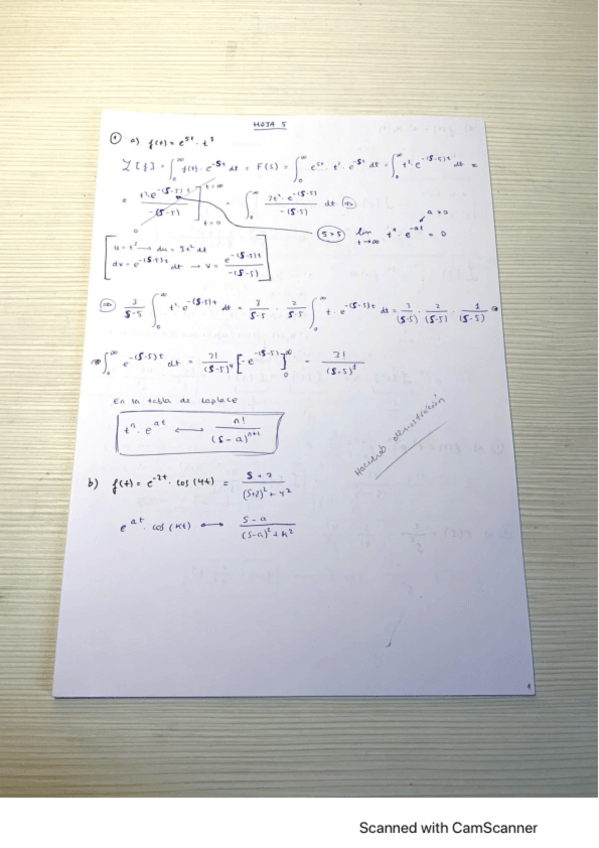 HOJA 5
① a) f(t) = e^{5t} · t^3
L[f] = ∫_0^∞ f(t) · e^{-st} dt = F(s) = ∫_0^∞ e^{5t} · t^3 · e^{-st} dt = ∫_0^∞ t^3 · e^{-(s-5)t} dt =
= t^3 · e^{-(s-5)t} / -(s-5) ]_{t=0}^{t=∞} - ∫_0^∞ 3t^2 · e^{-(s-5)} / -(s-5) dt
0
s>5 lim_{t→∞} t^n · e^{-at} = 0
a>0
u = t^3 → du = 3t^2 dt
dv = e^{-(s-5)t} dt → v = e^{-(s-5)t} / -(s-5)
3/(s-5) ∫_0^∞ t^2 e^{-(s-5)t} dt = 3/(s-5) · 2/(s-5) ∫_0^∞ t · e^{-(s-5)t} dt = 3/(s-5) · 2/(s-5) · 1/(s-5)
∫_0^∞ e^{-(s-5)t} dt = 3!/(s-5)^4 [-e^{-(s-5)t}]_0^∞ = 3!/(s-5)^4
En la tabla de Laplace
t^n · e^{at} ⟷ n!/(s-a)^{n+1}
Haciendo demostración
b) f(t) = e^{-2t} · cos(4t) = s+2/(s+2)^2 + 4^2
e^{at} · cos(kt) ⟷ s-a/(s-a)^2 + k^2
1
Scanned with CamScanner